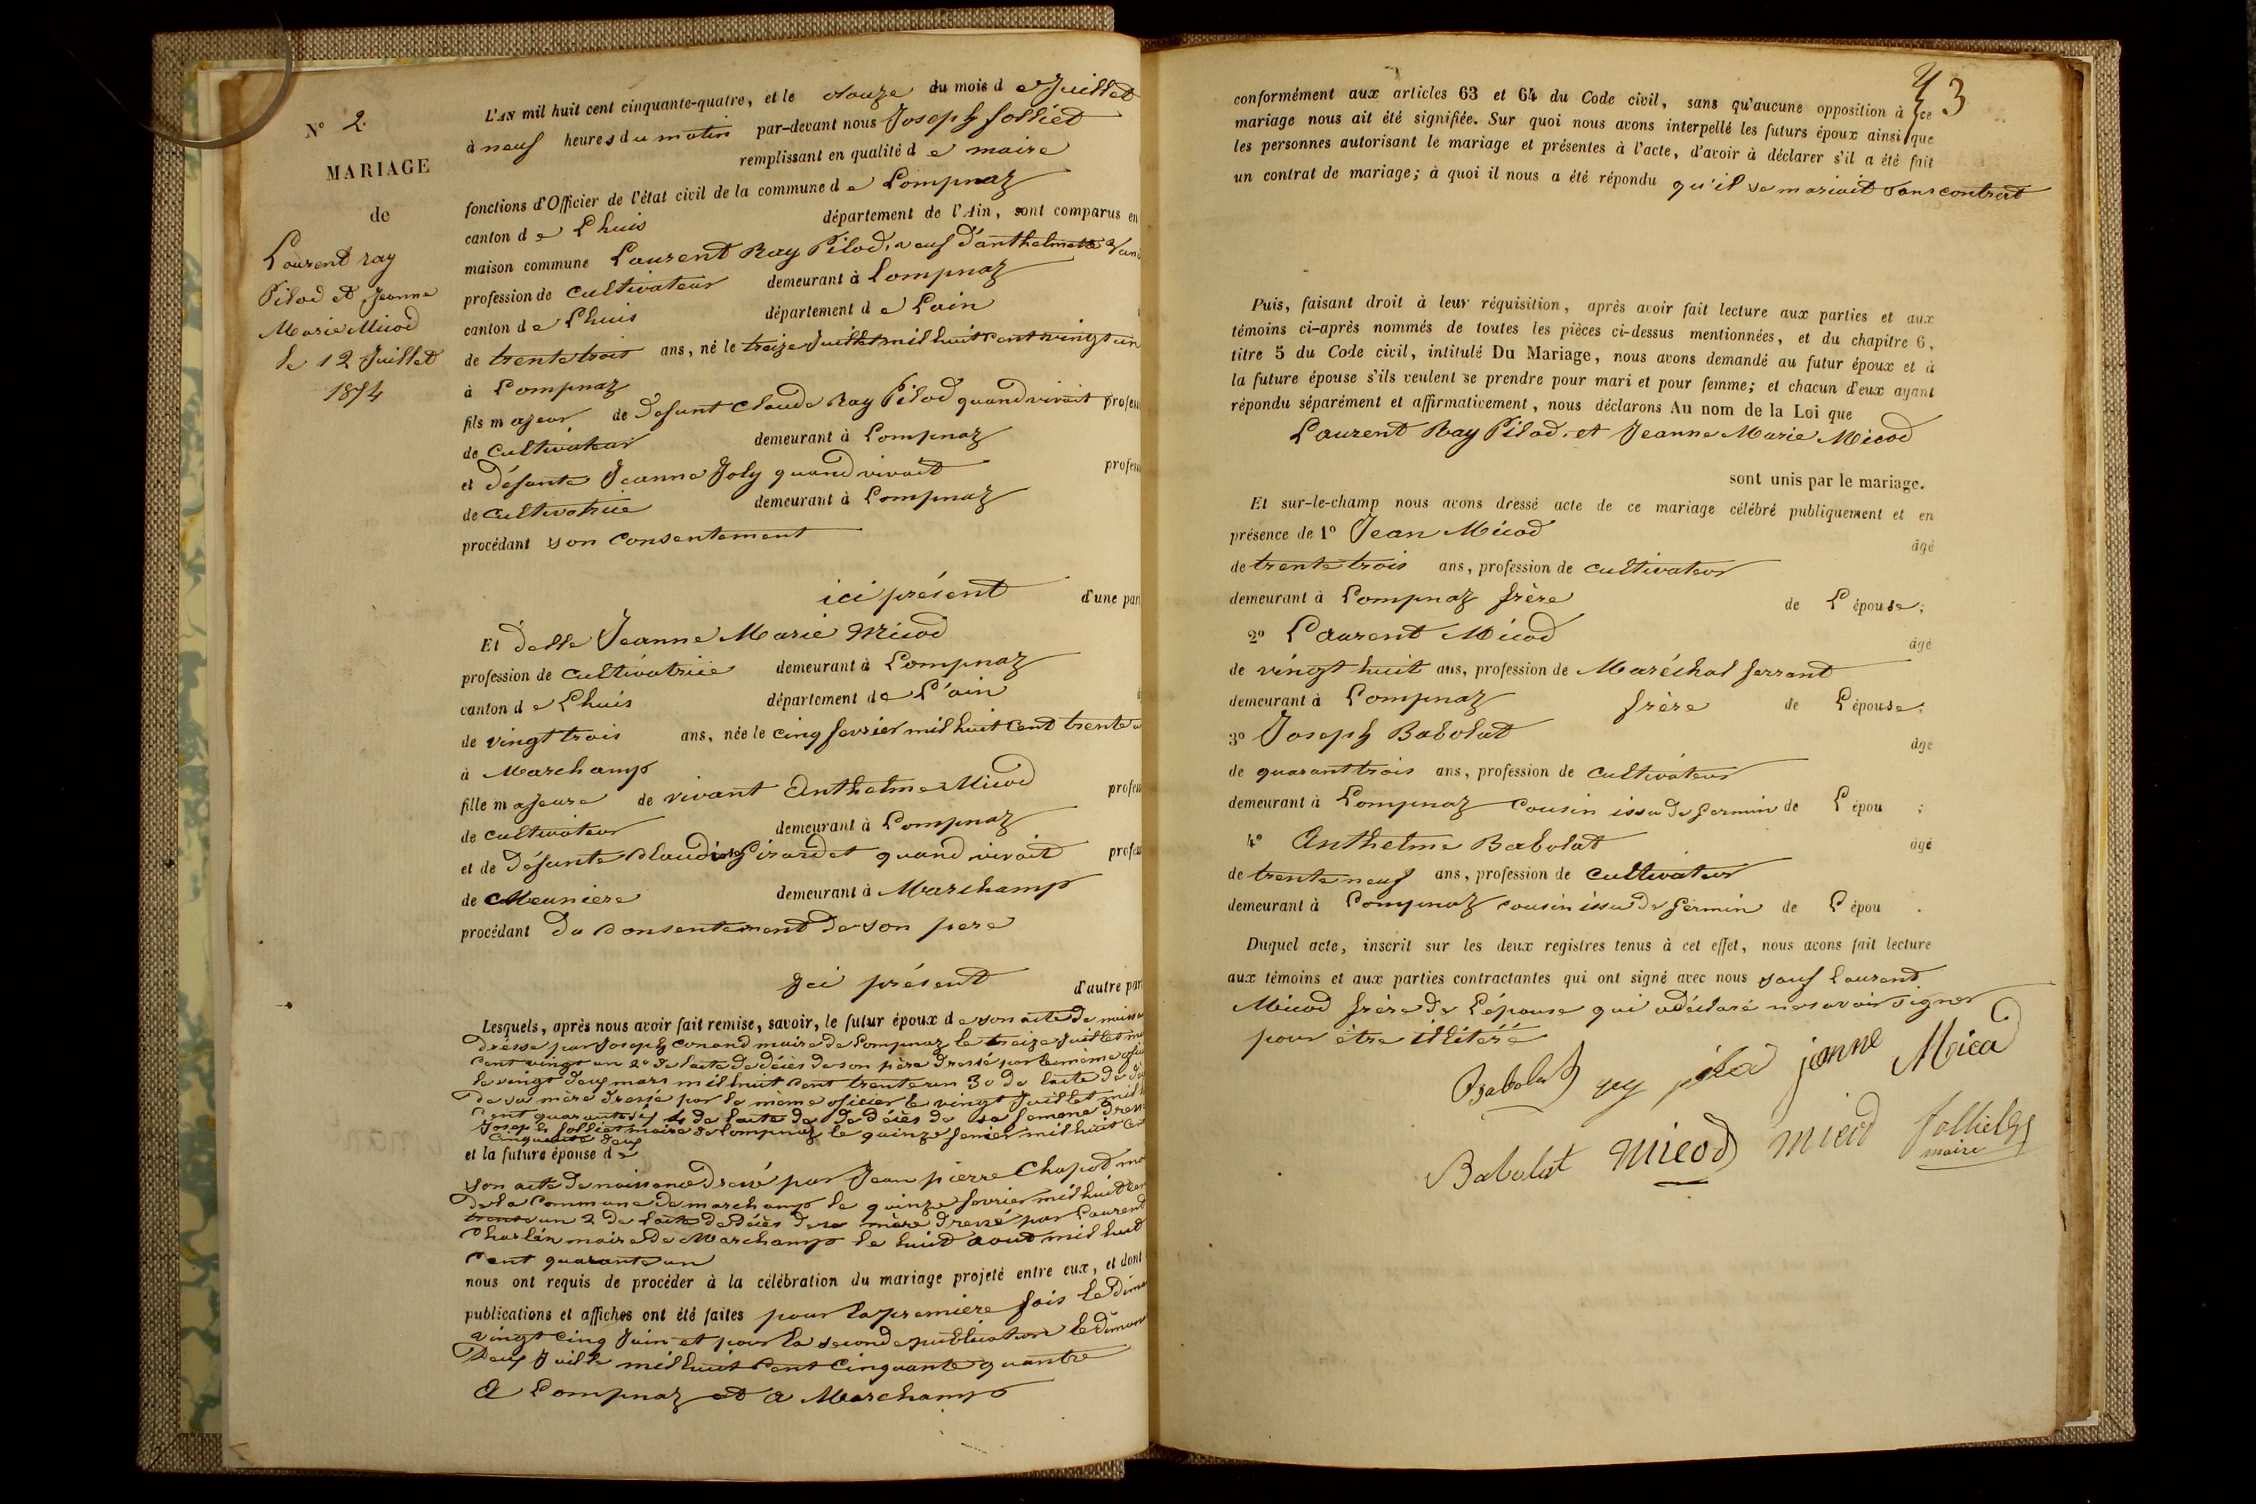 N° 2.
MARIAGE
de
Laurent ray
Pilod et Jeanne
Marie Micod
le 12 Juillet
1854
L'AN mil huit cent cinquante-quatre, et le douze du mois de Juillet
à neuf heures du matin par-devant nous Joseph folliet
remplissant en qualité de maire
fonctions d'Officier de l'état civil de la commune de Lompnaz
canton de Lhuis département de l'Ain, sont comparus en
maison commune Laurent Ray Pilod, veuf d'anthelmette
profession de Cultivateur demeurant à Lompnaz
canton de Lhuis département de Lain
de trente trois ans, né le treize Juillet mil huit cent vingt un
à Lompnaz
fils majeur de defunt Claude Ray Pilod quand vivait profes
de Cultivateur demeurant à Lompnaz
et défunte Jeanne Joly quand vivait profes
de Cultivatrice demeurant à Lompnaz
procédant son Consentement
ici présent d'une par
Et delle Jeanne Marie Micod
profession de Cultivatrice demeurant à Lompnaz
canton de Lhuis département de L'ain
de vingt trois ans, née le cinq fevrier mil huit cent trente u
à Marchamp
fille majeure de vivant Anthelme Micod profes
de cultivateur demeurant à Lompnaz
et de défunte Girardet quand vivait profes
de Meuniere demeurant à Marchamp
procédant du Consentement de son pere
Ici présent d'autre par
Lesquels, après nous avoir fait remise, savoir, le futur époux de son acte de naissa
dréssé par Joseph Conand maire de Lompnaz le treize Juillet mil
Cent vingt un 2° de lacte de décès de son père dressé par le même
le vingt deux mars mil huit Cent trente un 3° de lacte de
de sa mère dressé par le même oficier le vingt Juillet mil
Cent quarante 4 de lacte de de décès de sa femme dressé
Joseph folliet maire de Lompnaz le quinze fevrier mil huit Cent
Cinquante deux
et la future épouse de
son acte de naissance dressé par Jean pierre Chapod ma
de la Commune de marchamp le quinze fevrier mil huit cent
trente un 2 de lacte de décès de sa mère dressé par Laurent
maire de Marchamp le huit aout mil huit
Cent quarante un
nous ont requis de procéder à la célébration du mariage projeté entre eux, et dont
publications et affiches ont été faites pour la premiere fois le dima
vingt cinq Juin et pour la seconde publication le diman
deux Juille mil huit Cent Cinquante quantre
A Lompnaz et a Marchamp
43
conformément aux articles 63 et 64 du Code civil, sans qu'aucune opposition à ce
mariage nous ait été signifiée. Sur quoi nous avons interpellé les futurs époux ainsi que
les personnes autorisant le mariage et présentes à l'acte, d'avoir à déclarer s'il a été fait
un contrat de mariage; à quoi il nous a été répondu qu'il se mariait sans contrat
Puis, faisant droit à leur réquisition, après avoir fait lecture aux parties et aux
témoins ci-après nommés de toutes les pièces ci-dessus mentionnées, et du chapitre 6,
titre 5 du Code civil, intitulé Du Mariage, nous avons demandé au futur époux et à
la future épouse s'ils veulent se prendre pour mari et pour femme; et chacun d'eux ayant
répondu séparément et affirmativement, nous déclarons Au nom de la Loi que
Laurent Ray Pilod, et Jeanne Marie Micod
sont unis par le mariage.
Et sur-le-champ nous avons dressé acte de ce mariage célébré publiquement et en
présence de 1° Jean Micod âgé
de trente trois ans, profession de cultivateur
demeurant à Lompnaz frère de L'épouse;
2° Laurent Micod âgé
de vingt huit ans, profession de Maréchal ferrant
demeurant à Lompnaz frère de L'épouse;
3° Joseph Babolat âgé
de quarant trois ans, profession de cultivateur
demeurant à Lompnaz cousin issu de germin de L épou ;
4° Anthelme Babolat âgé
de trente neuf ans, profession de Cultivateur
demeurant à Lompnaz cousin issu de germin de L épou .
Duquel acte, inscrit sur les deux registres tenus à cet effet, nous avons fait lecture
aux témoins et aux parties contractantes qui ont signé avec nous sauf Laurent
Micod frère de L'épouse qui a déclaré ne savoir signer
pour être illitéré
Babolat pilod janne Mica
Babolat micod micod folliet
maire